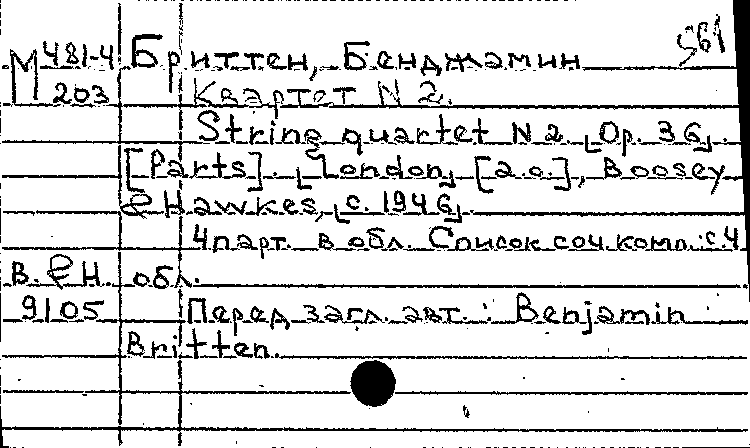 М 481-4 Бриттен, Бенджамин 561
203 Квартет N 2.
String quartet N 2. [Op. 36].
[Parts]. [London] [a.o.], Boosey
& Hawkes, [c. 1946].
4 парт. в обл. Список соч. комп.: с. 4
B. & H. обл.
9105 Перед загл. авт.: Benjamin
Britten.